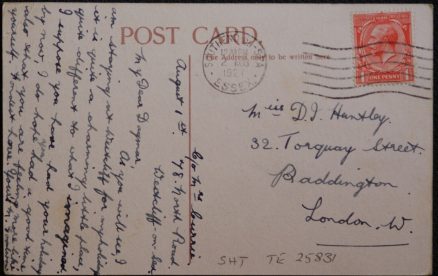 POST CARD.
The Address only to be written here.
SOUTHEND-ON-SEA
ESSEX
ONE PENNY
Miss D.J. Huntley.
32. Torquay Street.
Paddington
London. W.
SHT TE 25831
C/o Mrs Currie.
78 North Road.
Westcliff on Sea
August 1st
My Dear Dagmar.
As you will see I
am staying at Westcliff for my holiday
it is quite a charming little place,
quite different to what I imagined.
I suppose you have had your holiday
by now, I do hope had a good time
also that you are feeling more like
yourself. Fondest love. Yours